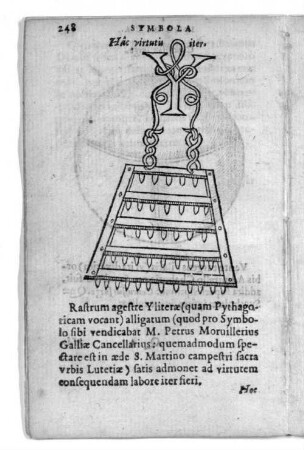 248 SYMBOLA
Hâc virtutis iter.
Rastrum agestre Y literæ (quam Pythago-
ricam vocant) alligatum (quod pro Symbo-
lo sibi vendicabat M. Petrus Moruillerius
Galliæ Cancellarius: quemadmodum spe-
ctare est in æde S. Martino campestri sacra
vrbis Lutetiæ) satis admonet ad virtutem
consequendam labore iter fieri.
Hoc